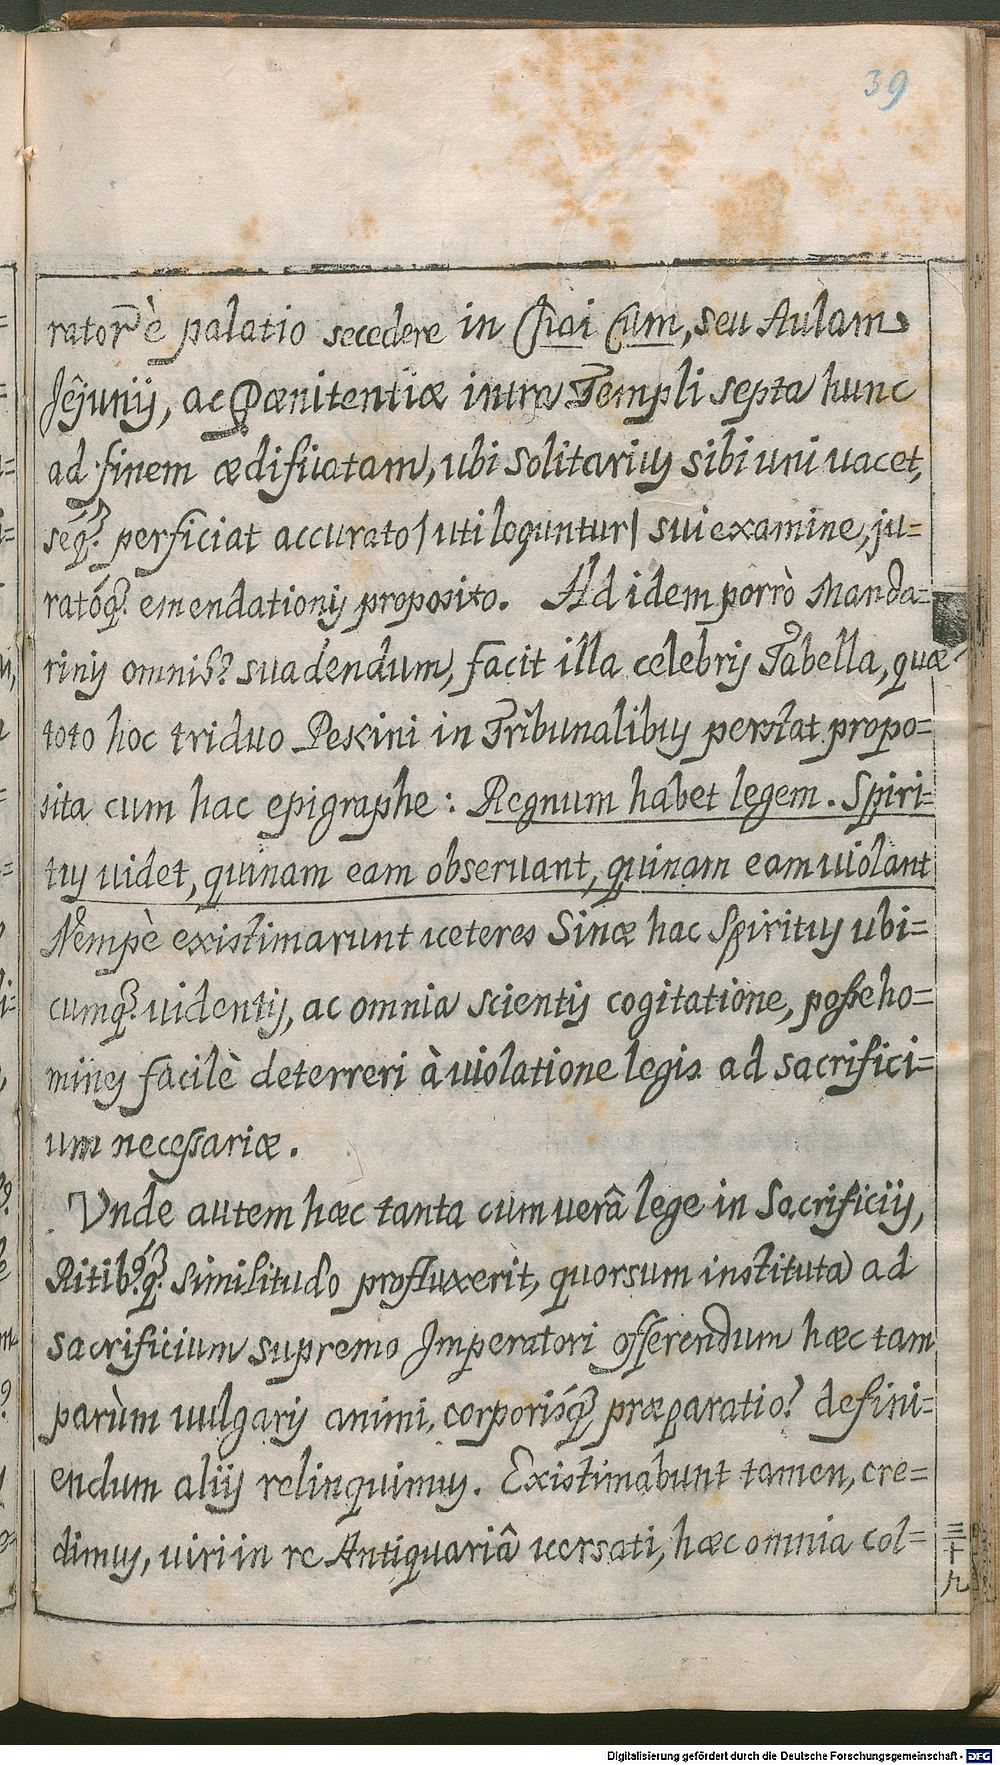 39
rator̃ è palatio secedere in Chai Cum, seu Aulam
Jejunij, ac Pœnitentiæ intra Templi septa hunc
ad finem ædificatam, ubi solitarius sibi uni vacet,
séq; perficiat accurato/ uti loquuntur/ sui examine, ju=
ratóq; emendationis proposito. Ad idem porrò Manda=
rinis omnib; suadendum, facit illa celebris Tabella, quæ
toto hoc triduo Pekini in Tribunalibus perstat propo=
sita cum hac epigraphe: Regnum habet legem. Spiri=
tus videt, quinam eam observant, quinam eam violant
Nempè existimarunt veteres Sinæ hac Spiritus ubi=
cumq; videntis, ac omnia scientis cogitatione, posse ho=
mines facilè deterreri à violatione legis ad sacrifici=
um necessariæ.
Unde autem hæc tanta cum verâ lege in Sacrificijs,
Ritib;q; similitudo profluxerit, quorsum instituta ad
sacrificium supremo Imperatori offerendum hæc tam
parùm vulgaris animi, corporisq; præparatio? defini=
endum alijs relinquimus. Existimabunt tamen, cre=
dimus, viri in re Antiquariâ versati, hæc omnia col=
三十九
Digitalisierung gefördert durch die Deutsche Forschungsgemeinschaft - DFG